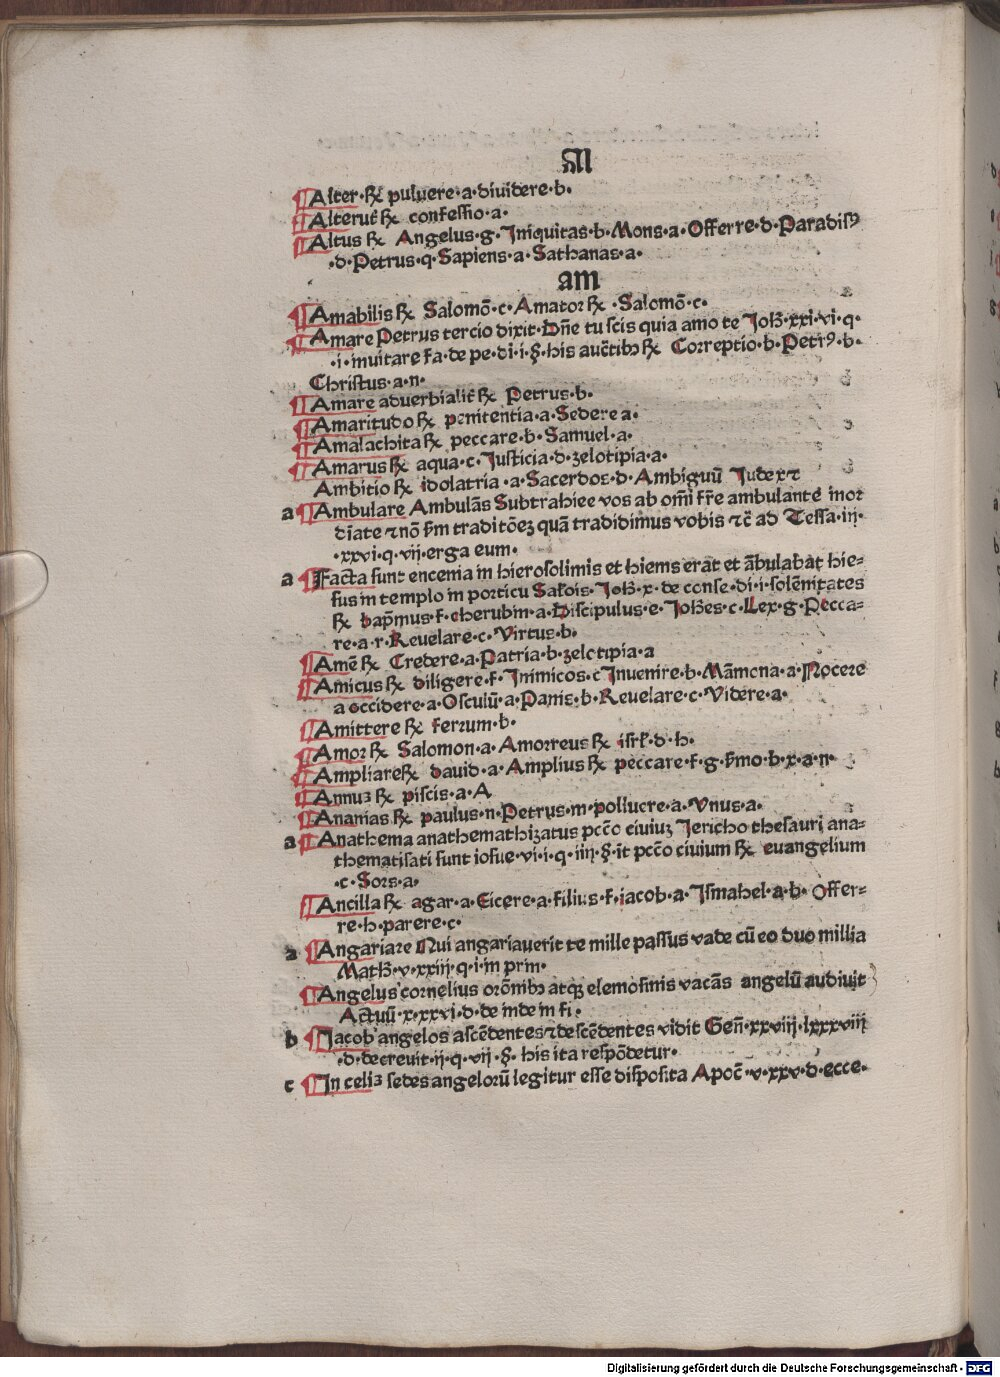 Al
Alter·℞ puluere·a·diuidere·b·
Alterut̄ ℞ confessio·a·
Altus ℞ Angelus·g·Iniquitas·b·Mons·a·Offerre·d·Paradisꝰ
·d·Petrus·q·Sapiens·a·Sathanas·a·
am
Amabilis ℞ Salomō·c·Amator ℞ ·Salomō·c·
Amare Petrus tercio dixit·Dn̄e tu scis quia amo te Joh̄·xxi·vi·q·
·i·inuitare fa·de pe·di·i·§·his auc̄tib3 ℞ Correptio·b·Petrꝰ·b·
Christus·a·n·
Amare aduerbialit̄ ℞ Petrus·b·
Amaritudo ℞ penitentia·a·Sedere a·
Amalachita ℞ peccare·b·Samuel·a·
Amarus ℞ aqua·c·Justicia·d·zelotipia·a·
Ambitio ℞ idolatria·a·Sacerdos·d·Ambiguū Judex ⁊
a Ambulare Ambulās Subtrahiee vos ab om̄i fr̄e ambulantē inor
dīate ⁊ nō ẜm traditōeʒ quā tradidimus vobis ⁊c̄ ad Tessa·iij·
·xxvi·q·vij·erga eum·
a Facta sunt encenia in hierosolimis et hiems erat et ābulabat hie⸗
sus in templo in porticu Salōis·Joh̄·x·de conse·di·i·solēnitates
℞ bap̄mus·f·cherubin·a·Discipulus·e·Joh̄es·c·Lex·g·Pecca⸗
re·a·r·Reuelare·c·Virtus·b·
Amē ℞ Credere·a·Patria·b·zelotipia·a
Amicus ℞ diligere·f·Inimicos·c Inuenire·b·Māmona·a·Nocere
a occidere·a·Osculū·a·Panis·b·Reuelare·c·Videre·a·
Amittere ℞ ferrum·b·
Amor ℞ Salomon·a·Amorreus ℞ isrl̄·d·h·
Ampliare ℞ dauid·a·Amplius ℞ peccare·f·g·ẜmo·b·x·a·n·
Annuʒ ℞ piscis·a·A
Ananias ℞ paulus·n·Petrus·m·polluere·a·Vnus·a·
a Anathema anathemathizatus pccō ciuiuʒ Jericho thesauri ana⸗
thematisati sunt iosue·vi·i·q·iiij·§·it̄ pccō ciuium ℞ euangelium
·c·Sors·a·
Ancilla ℞ agar·a·Eicere·a·filius·f·iacob·a·Ismahel·a·b·Offer⸗
re·h·parere·c·
a Angariare Qui angariauerit te mille passus vade cū eo duo millia
Math̄·v·xxiij·q·i·in prin·
Angelus cornelius orōnib3 atq3 elemosinis vacās angelū audiuit
Actuū·x·xxvi·d·de inde in fi·
b Jacob angelos ascēdentes ⁊ descēdentes vidit Gen̄·xxviij·lxxxviij
·d·decreuit·ij·q·vij·§·his ita respōdetur·
c In celis sedes angelorū legitur esse disposita Apoc̄·v·xxv·d·ecce·
Digitalisierung gefördert durch die Deutsche Forschungsgemeinschaft - DFG